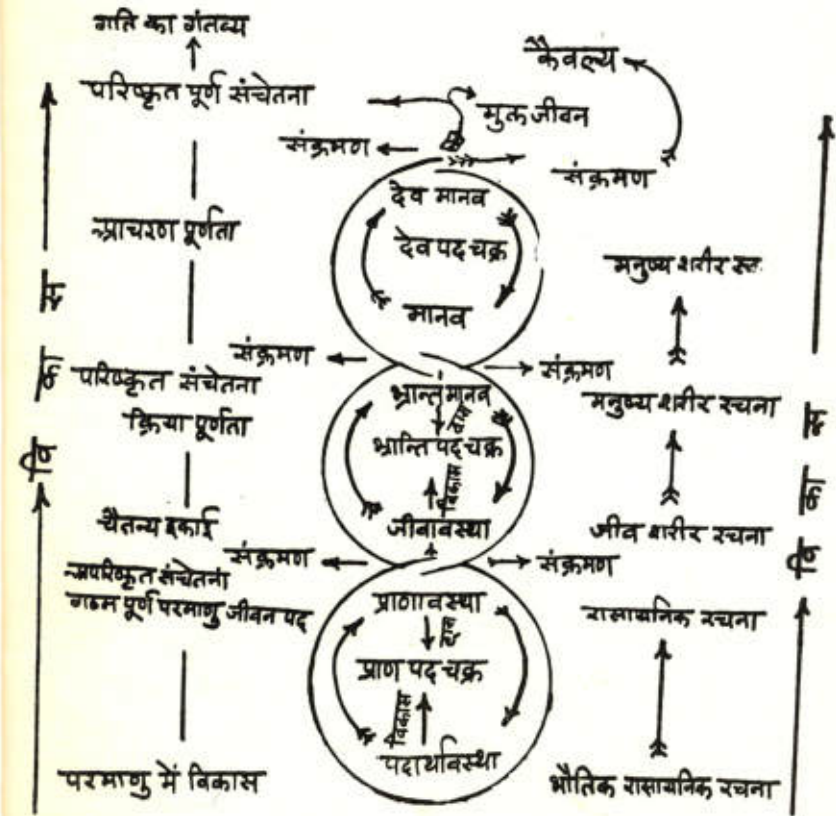 गति का गंतव्य
परिष्कृत पूर्ण संचेतना
आचरण पूर्णता
परिष्कृत संचेतना
क्रिया पूर्णता
चैतन्य इकाई
अपरिष्कृत संचेतना
गठन पूर्ण परमाणु जीवन पद
परमाणु में विकास
विकास
कैवल्य
मुक्त जीवन
संक्रमण
संक्रमण
देव मानव
देव पद चक्र
मानव
संक्रमण
संक्रमण
भ्रान्त मानव
ह्रास
भ्रान्ति पद चक्र
विकास
जीवावस्था
संक्रमण
संक्रमण
प्राणावस्था
ह्रास
प्राण पद चक्र
विकास
पदार्थावस्था
मनुष्य शरीर
मनुष्य शरीर रचना
जीव शरीर रचना
रासायनिक रचना
भौतिक रासायनिक रचना
विकास